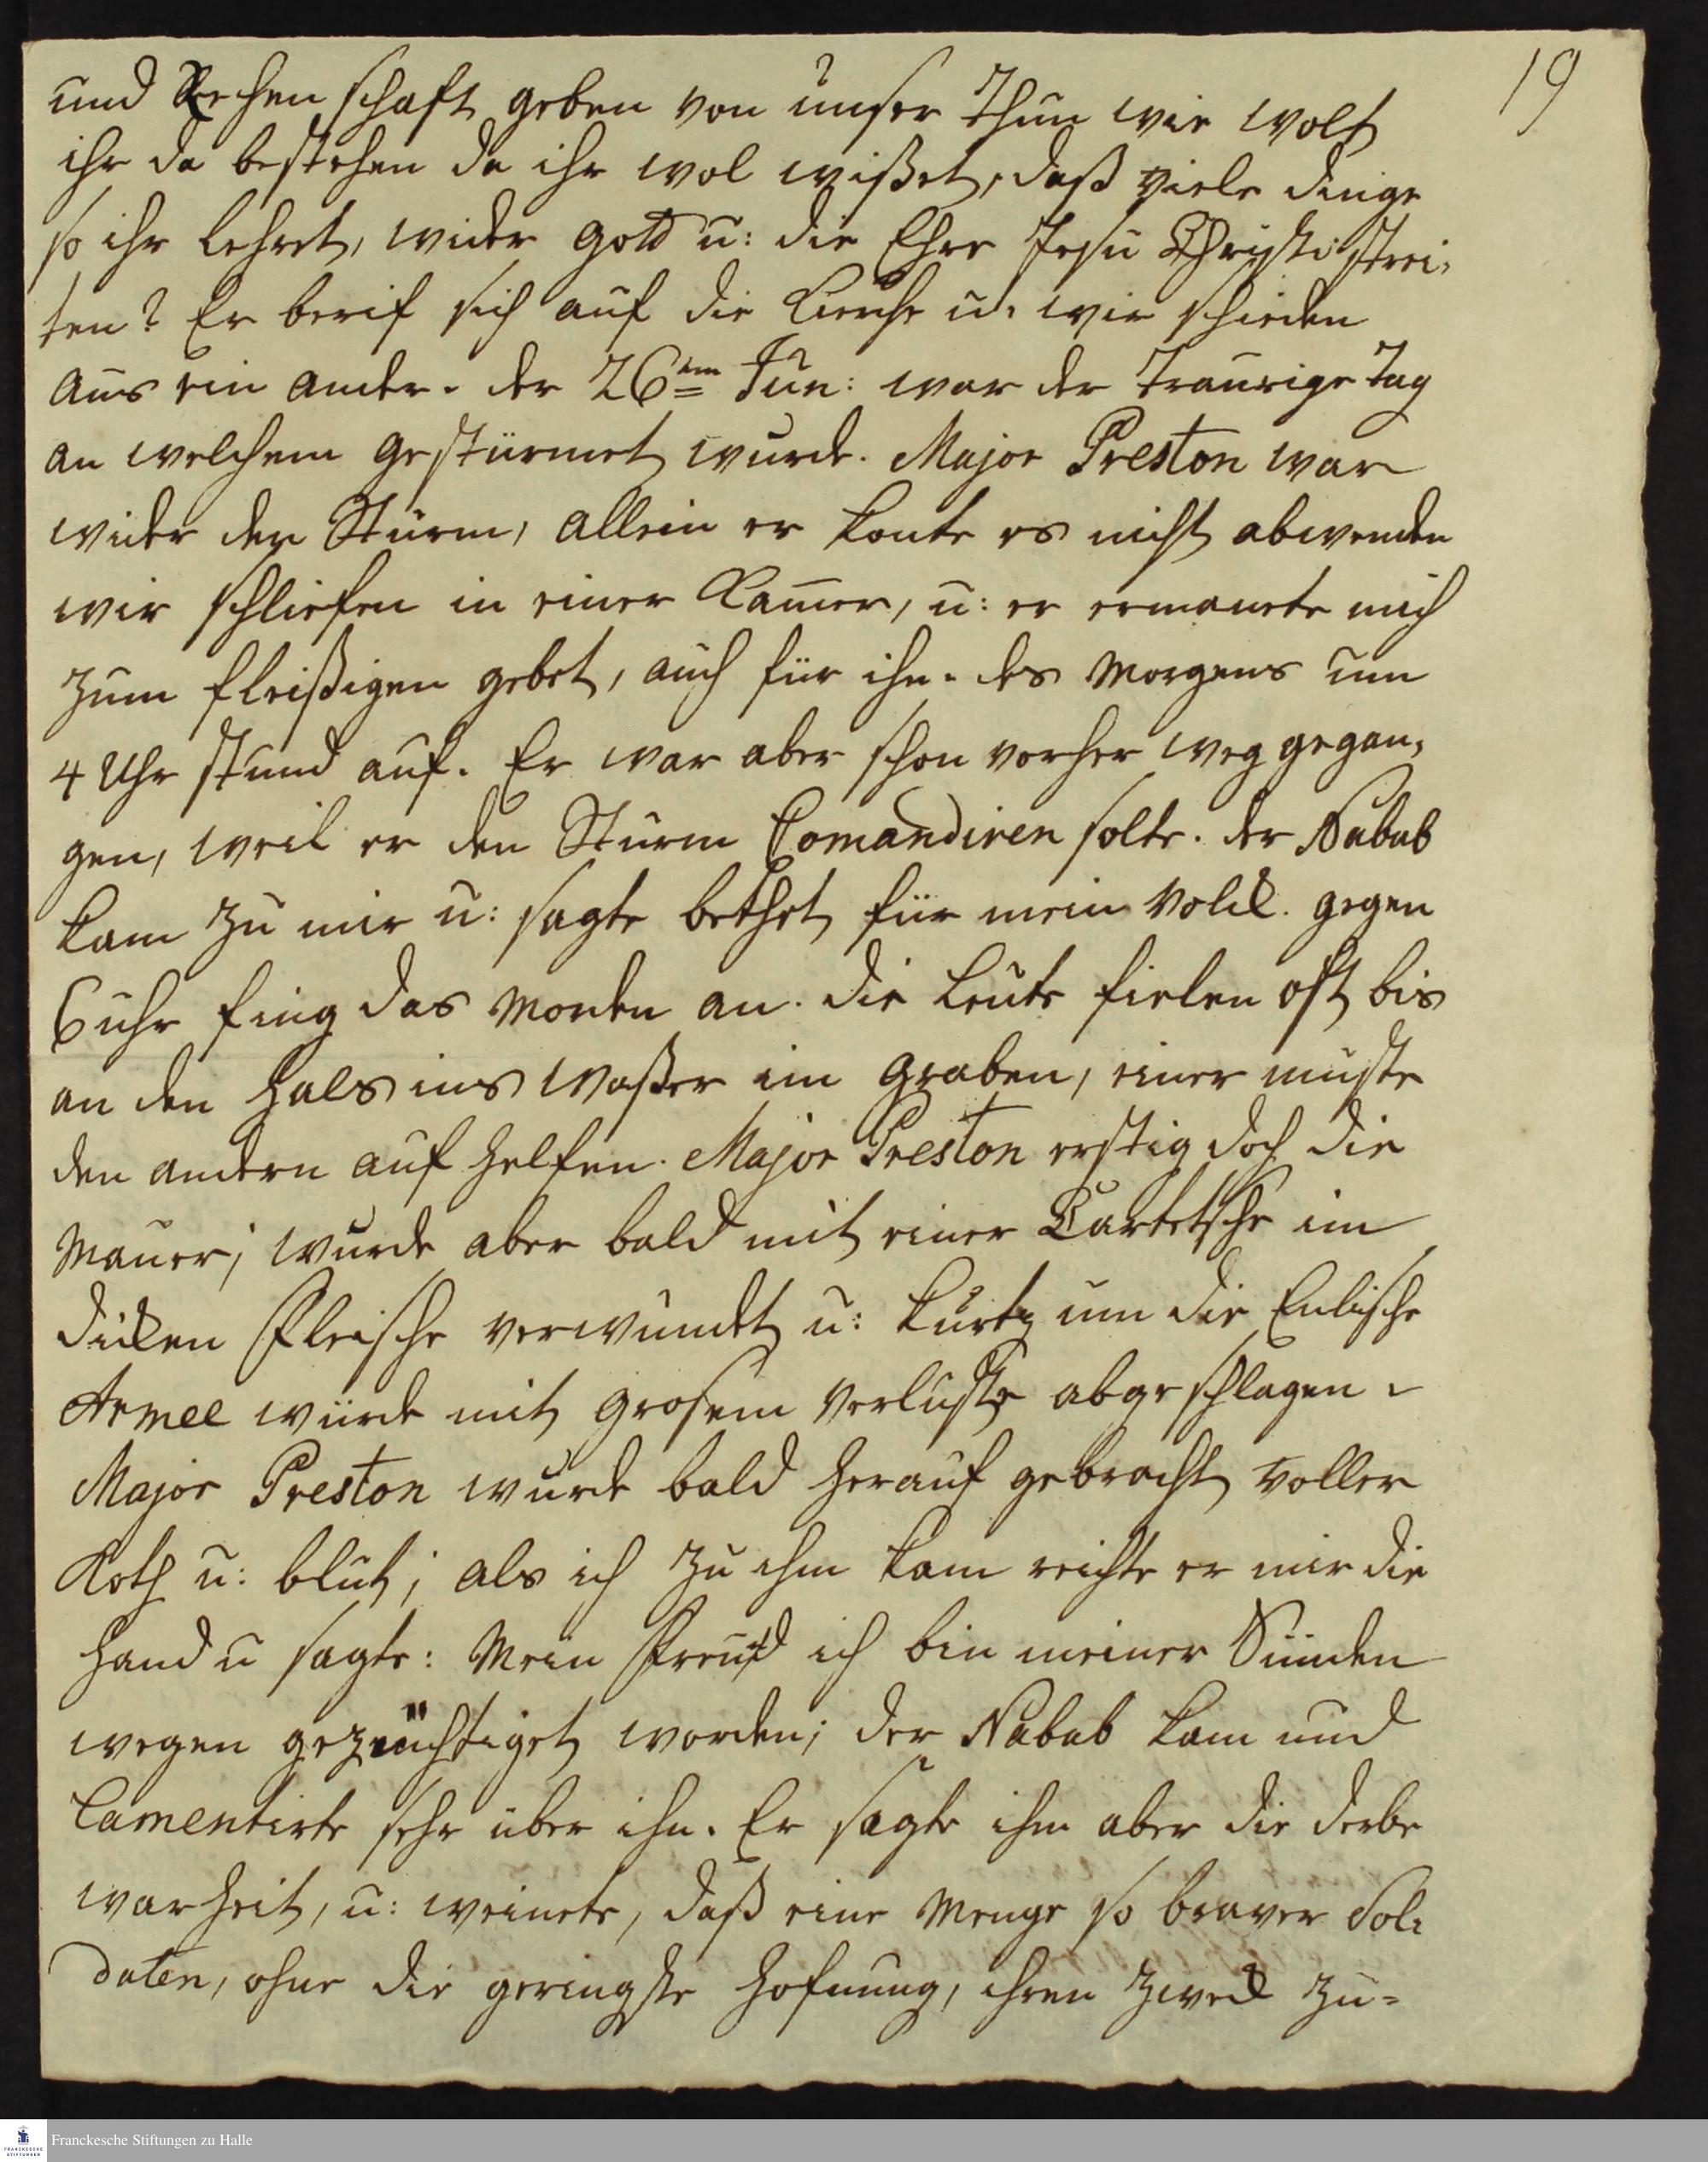 19
und Rechenschaft geben von unser Thun wie wolt
ihr da bestehen da ihr wol wißet, daß viele dinge
so ihr lehret, wider Gott u: die Ehre Jesu Christi strei-
ten? Er berif sich auf die Kirche u. wir schieden
aus ein ander. der 26ten Jun: war der traurige Tag
an welchem gestürmet wurde. Major Preston war
wider den Sturm, allein er konte es nicht abwenden
wir schliefen in einer Kam̅er, u: er ermanete mich
zum fleißigen gebet, auch für ihn. des Morgens um
4 Uhr stund auf. Er war aber schon vorher weg gegan-
gen, weil er den Sturm Comandiren solte. der Nabab
kam zu mir u: sagte bethet für mein Volck. gegen
6 uhr fing das Morden an. die Leute fielen oft bis
an den Hals ins Waßer im Graben, einer muste
den andern auf helfen. Major Preston erstig doch die
Mauer; wurde aber bald mit einer Cartetsche im
dicken Fleische verwundet u: kurtz um die Enlische
Armee würde mit grosem Verluste abgeschlagen.
Major Preston wurde bald herauf gebracht voller
Koth u: blut; als ich zu ihm kam reichte er mir die
Hand u sagte: Mein Freund ich bin meiner Sünden
wegen gezüchtiget worden; der Nabab kam und
Lamentirte sehr über ihn. Er sagte ihm aber die derbe
warheit, u: weinete, daß eine Menge so braver Sol-
daten, ohne die geringste Hofnung, ihren Zweck zu-
Franckesche Stiftungen zu Halle